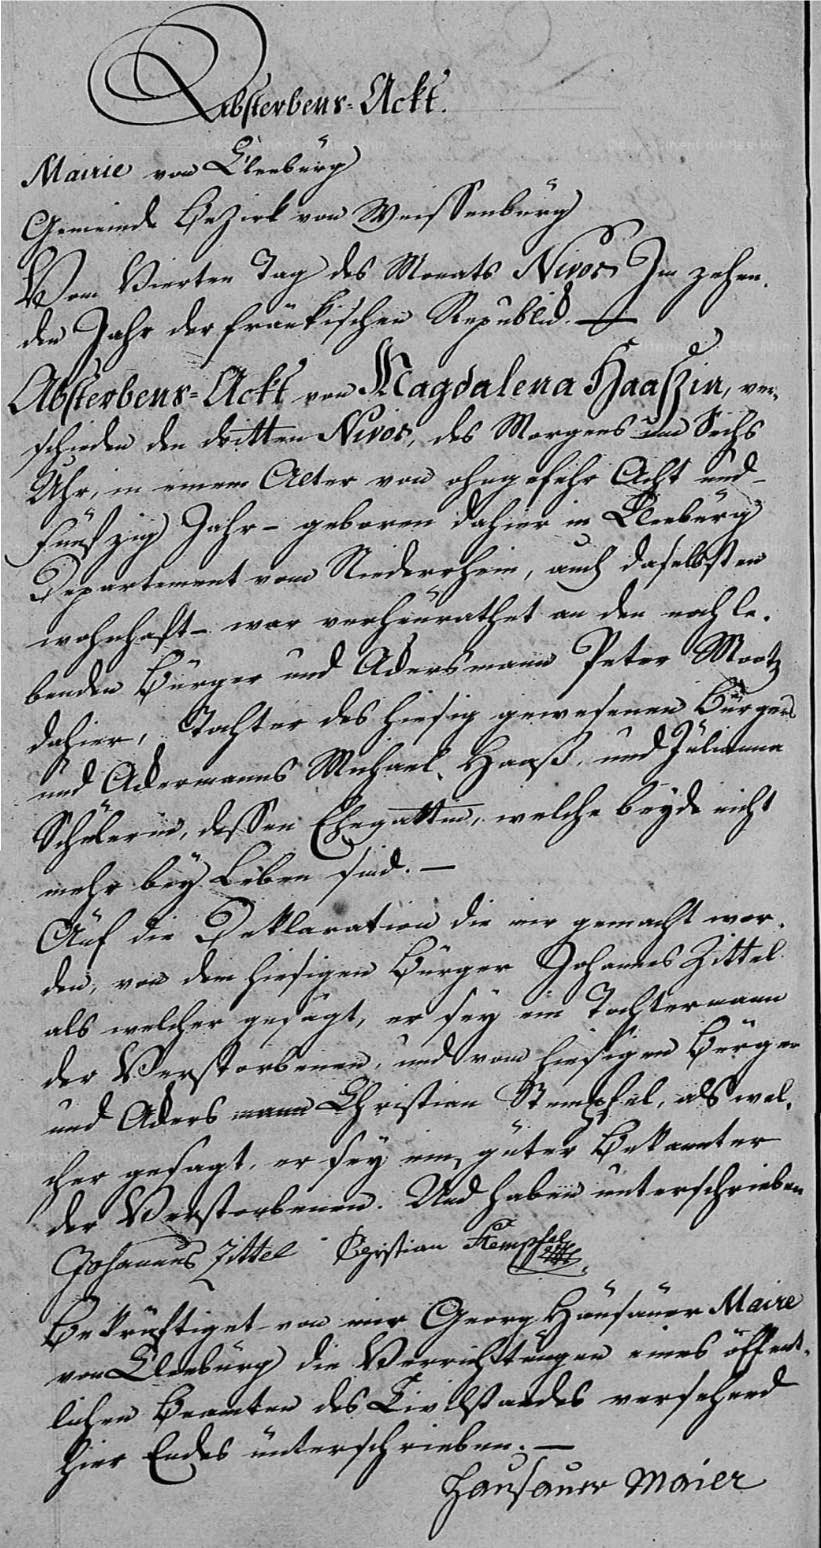 Absterbens-Ackt.
Mairie von Cleebürg
Gemeinde Bezirk von Weissenbürg
Vom Vierten Tag des Monats Nivos Im zehen-
den Jahr der fränkischen Republick. —
Absterbens-Ackt von Magdalena Haaßin, ver-
schieden den dritten Nivos, des Morgens um Sechs
Uhr, in einem Alter von ohngefehr Acht und-
fünfzig Jahr – geboren dahier in Cleebürg
Departement vom Niederrhein, auch daselbsten
wohnhaft – war verheürathet an den noch le-
benden Bürger und Ackersmann Peter Mootz
dahier, Tochter des hiesig gewesenen Bürgers
und Ackermanns Michael Haaß, und Julianna
Schülerin, dessen Ehegattin, welche beyde nicht
mehr bey Leben sind. —
Auf die Deklaration die mir gemacht wor-
den, von dem hiesigen Bürger Johannes Zittel
als welcher gesagt, er sey ein Tochtermann
der Verstorbenen, und vom hiesigen Bürger
und Ackersmann Christian Stempfel, als wel-
cher gesagt, er sey ein guter Bekannter
der Verstorbenen. Und haben unterschrieben
Johannes Zittel Christian Stempfel
Bekräftiget von mir Georg Haüsaüer Maire
von Cleebürg die Verrichtungen eines öffent-
lichen Beamten des Civilstandes versehend
hier Endes ünterschrieben. —
Hausauer Maier